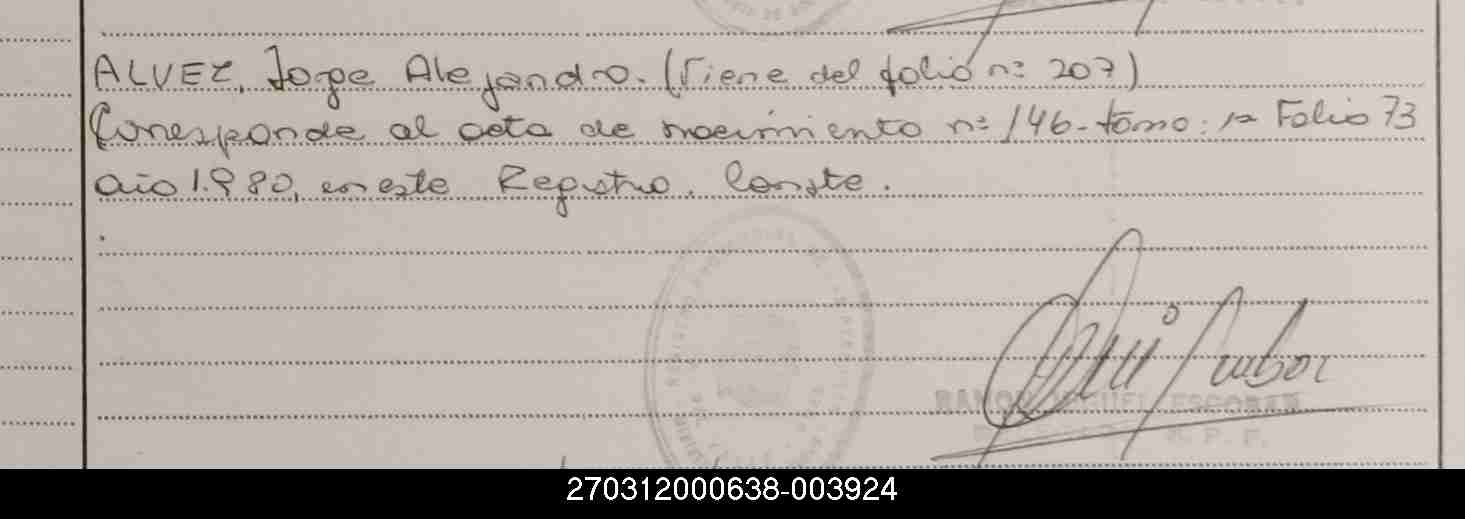 ALVEZ, Jorge Alejandro. (Viene del folio nº 207)
Corresponde al acta de nacimiento nº 146 - tomo: 1º Folio 73
año 1.980, en este Registro. Conste.
RAMON MIGUEL ESCOBAR
270312000638-003924